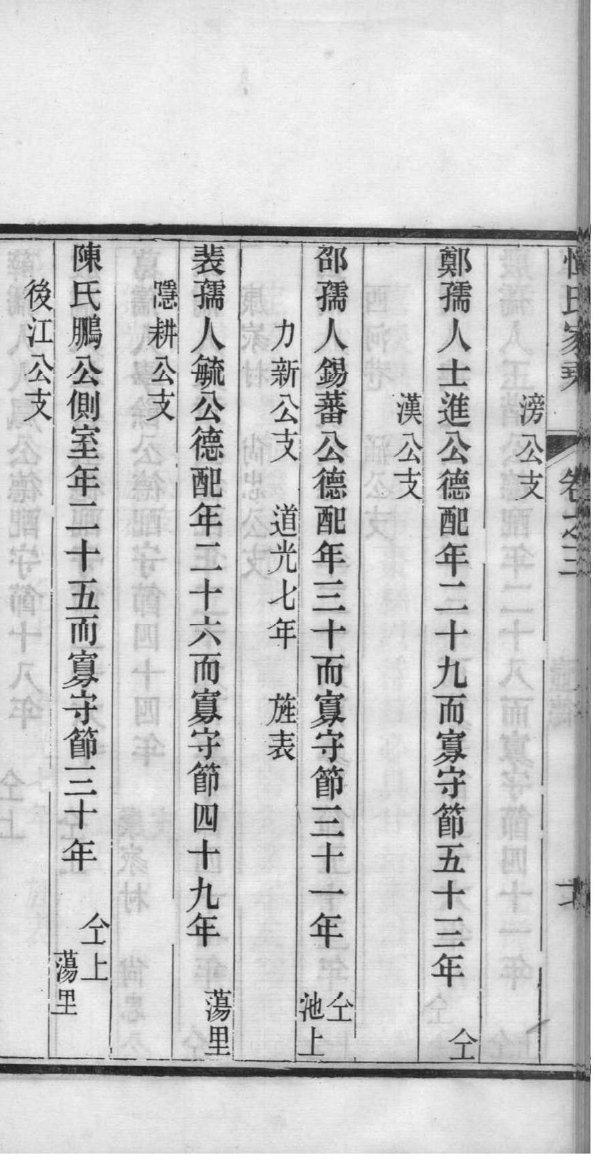 氏家乘 卷之三
滂公支
鄭孺人士進公德配年二十九而寡守節五十三年 仝
漢公支
邵孺人錫蕃公德配年三十而寡守節三十一年 仝
池上
力新公支 道光七年 旌表
裴孺人毓公德配年二十六而寡守節四十九年 蕩里
隱耕公支
陳氏鵬公側室年二十五而寡守節三十年 仝上
蕩里
後江公支